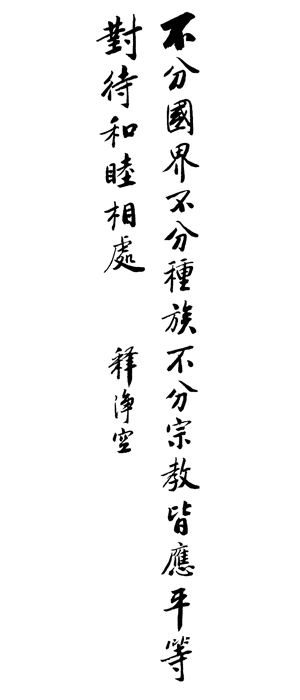 不分國界不分種族不分宗教皆應平等
對待和睦相處
釋淨空